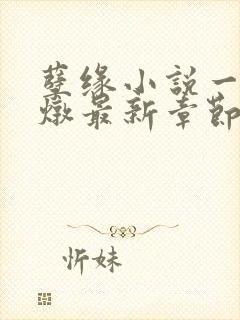 孽缘小说一
燉最新章节
忻妹